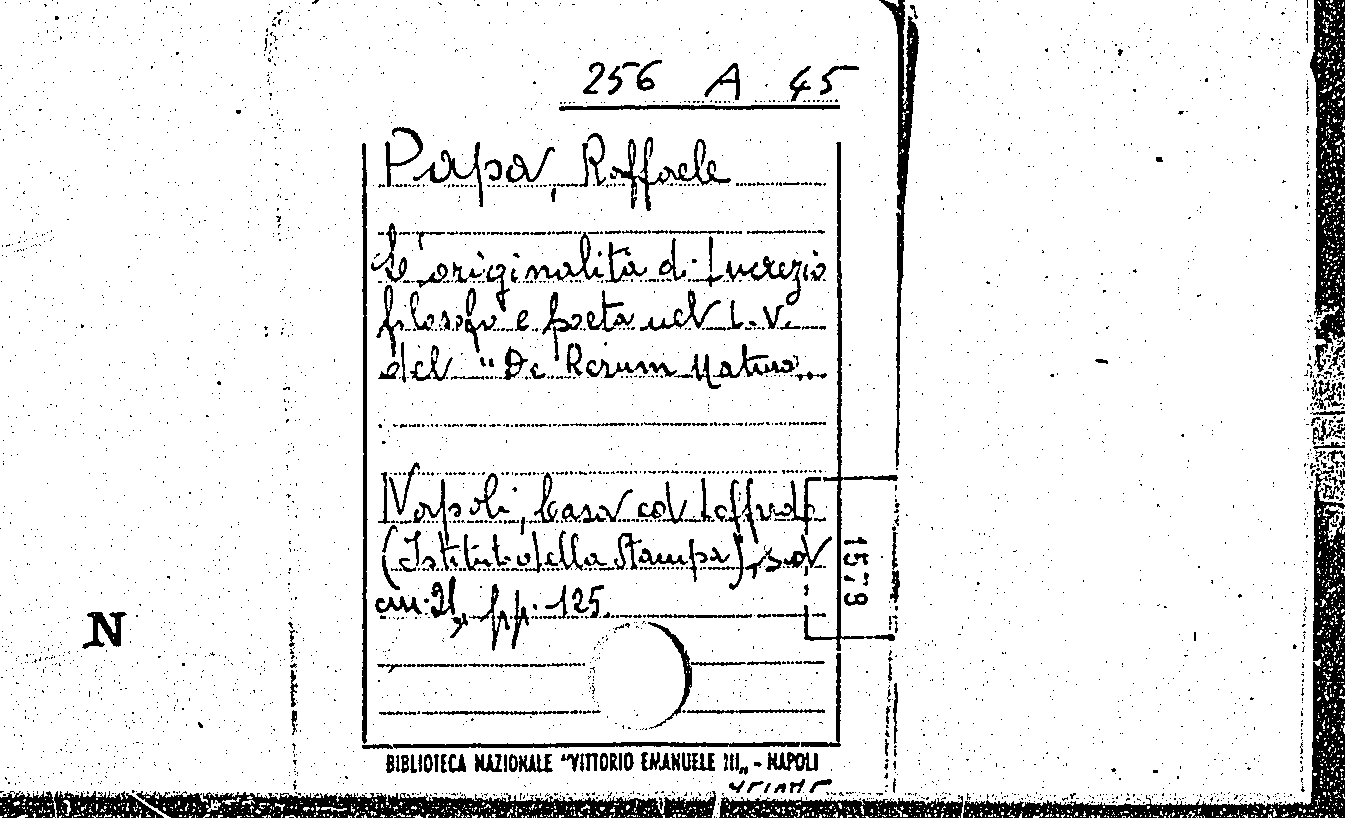 256 A 45
Papa, Raffaele
L'originalità di Lucrezio
filosofo e poeta nel L. V.
del "De Rerum Natura„
Napoli, Casa ed Loffredo
(Istituto della Stampa), s.d
cm. 21, pp. 125.
1579
N
BIBLIOTECA NAZIONALE "VITTORIO EMANUELE III„ - NAPOLI